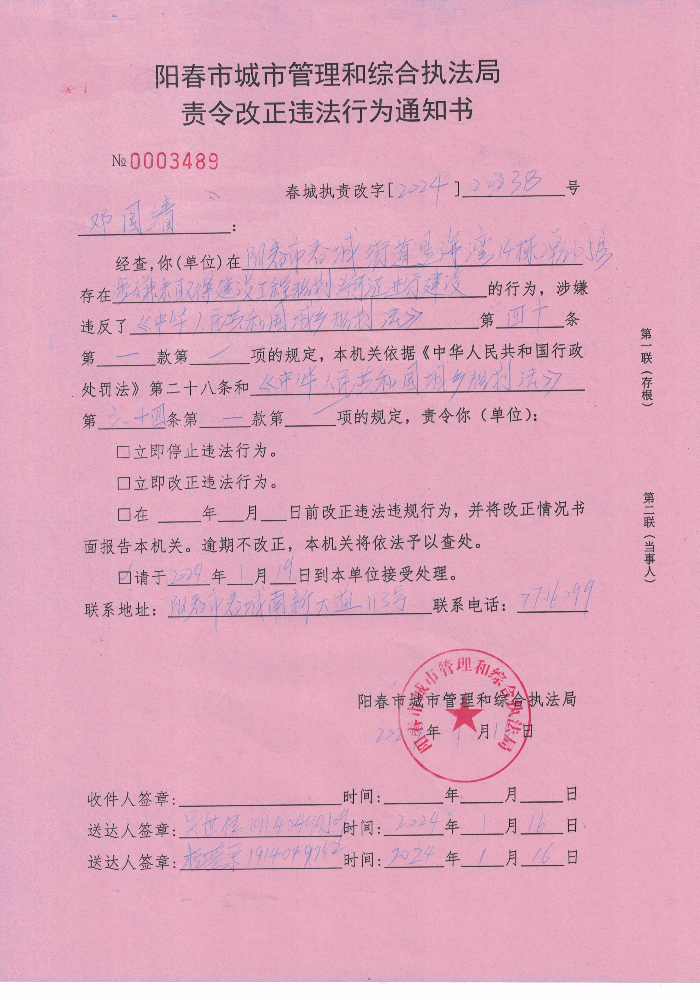 阳春市城市管理和综合执法局
责令改正违法行为通知书
№0003489
春城执责改字[2024]号
邓国清：
经查,你(单位)在阳春市春城街
存在涉嫌未取得建设工程规划许可证进行建设的行为，涉嫌
违反了《中华人民共和国城乡规划法》第四十条
第一款第／项的规定，本机关依据《中华人民共和国行政
处罚法》第二十八条和《中华人民共和国城乡规划法》
第六十四条第一款第／项的规定，责令你（单位）：
□立即停止违法行为。
□立即改正违法行为。
□在 年 月 日前改正违法违规行为，并将改正情况书
面报告本机关。逾期不改正，本机关将依法予以查处。
☑请于2024年1月19日到本单位接受处理。
联系地址：阳春市春城南新大道113号联系电话：
阳春市城市管理和综合执法局
年1月日
收件人签章: 时间: 年 月 日
送达人签章: 时间: 2024年1月16日
送达人签章: 时间: 2024年1月16日
第一联（存根）
第二联（当事人）
阳春市城市管理和综合执法局